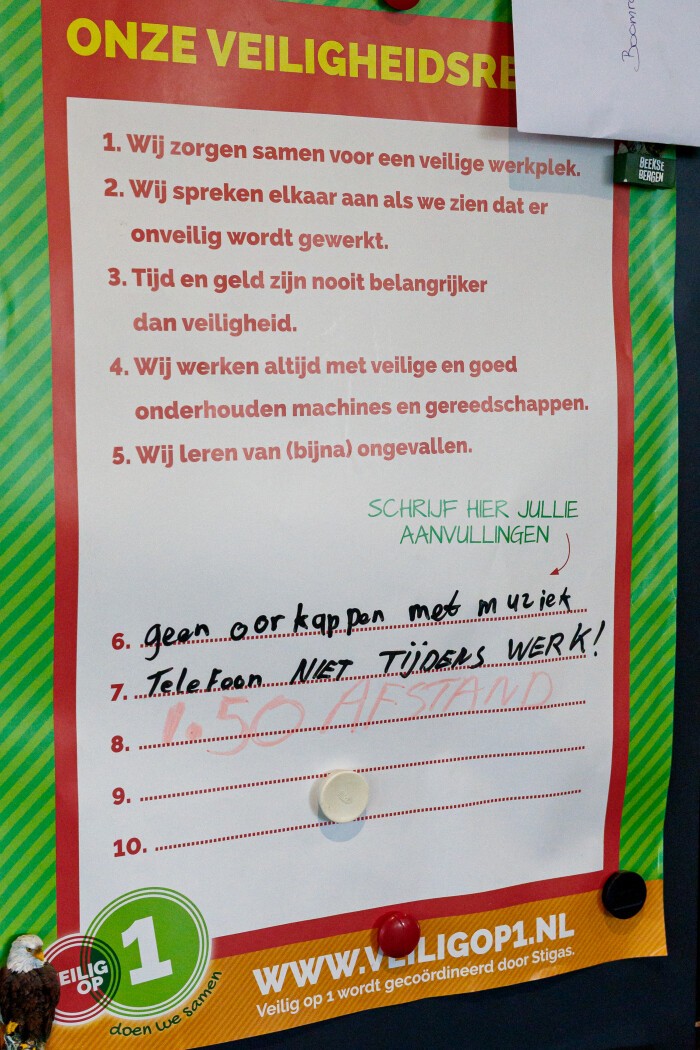 ONZE VEILIGHEIDSRE
Boomro
BEEKSE
BERGEN
1. Wij zorgen samen voor een veilige werkplek.
2. Wij spreken elkaar aan als we zien dat er
onveilig wordt gewerkt.
3. Tijd en geld zijn nooit belangrijker
dan veiligheid.
4. Wij werken altijd met veilige en goed
onderhouden machines en gereedschappen.
5. Wij leren van (bijna) ongevallen.
SCHRIJF HIER JULLIE
AANVULLINGEN
6. geen oorkappen met muziek
7. Telefoon NIET TIJDENS WERK!
8. 1.50 AFSTAND
9.
10.
VEILIG
OP
1
doen we samen
WWW.VEILIGOP1.NL
Veilig op 1 wordt gecoördineerd door Stigas.